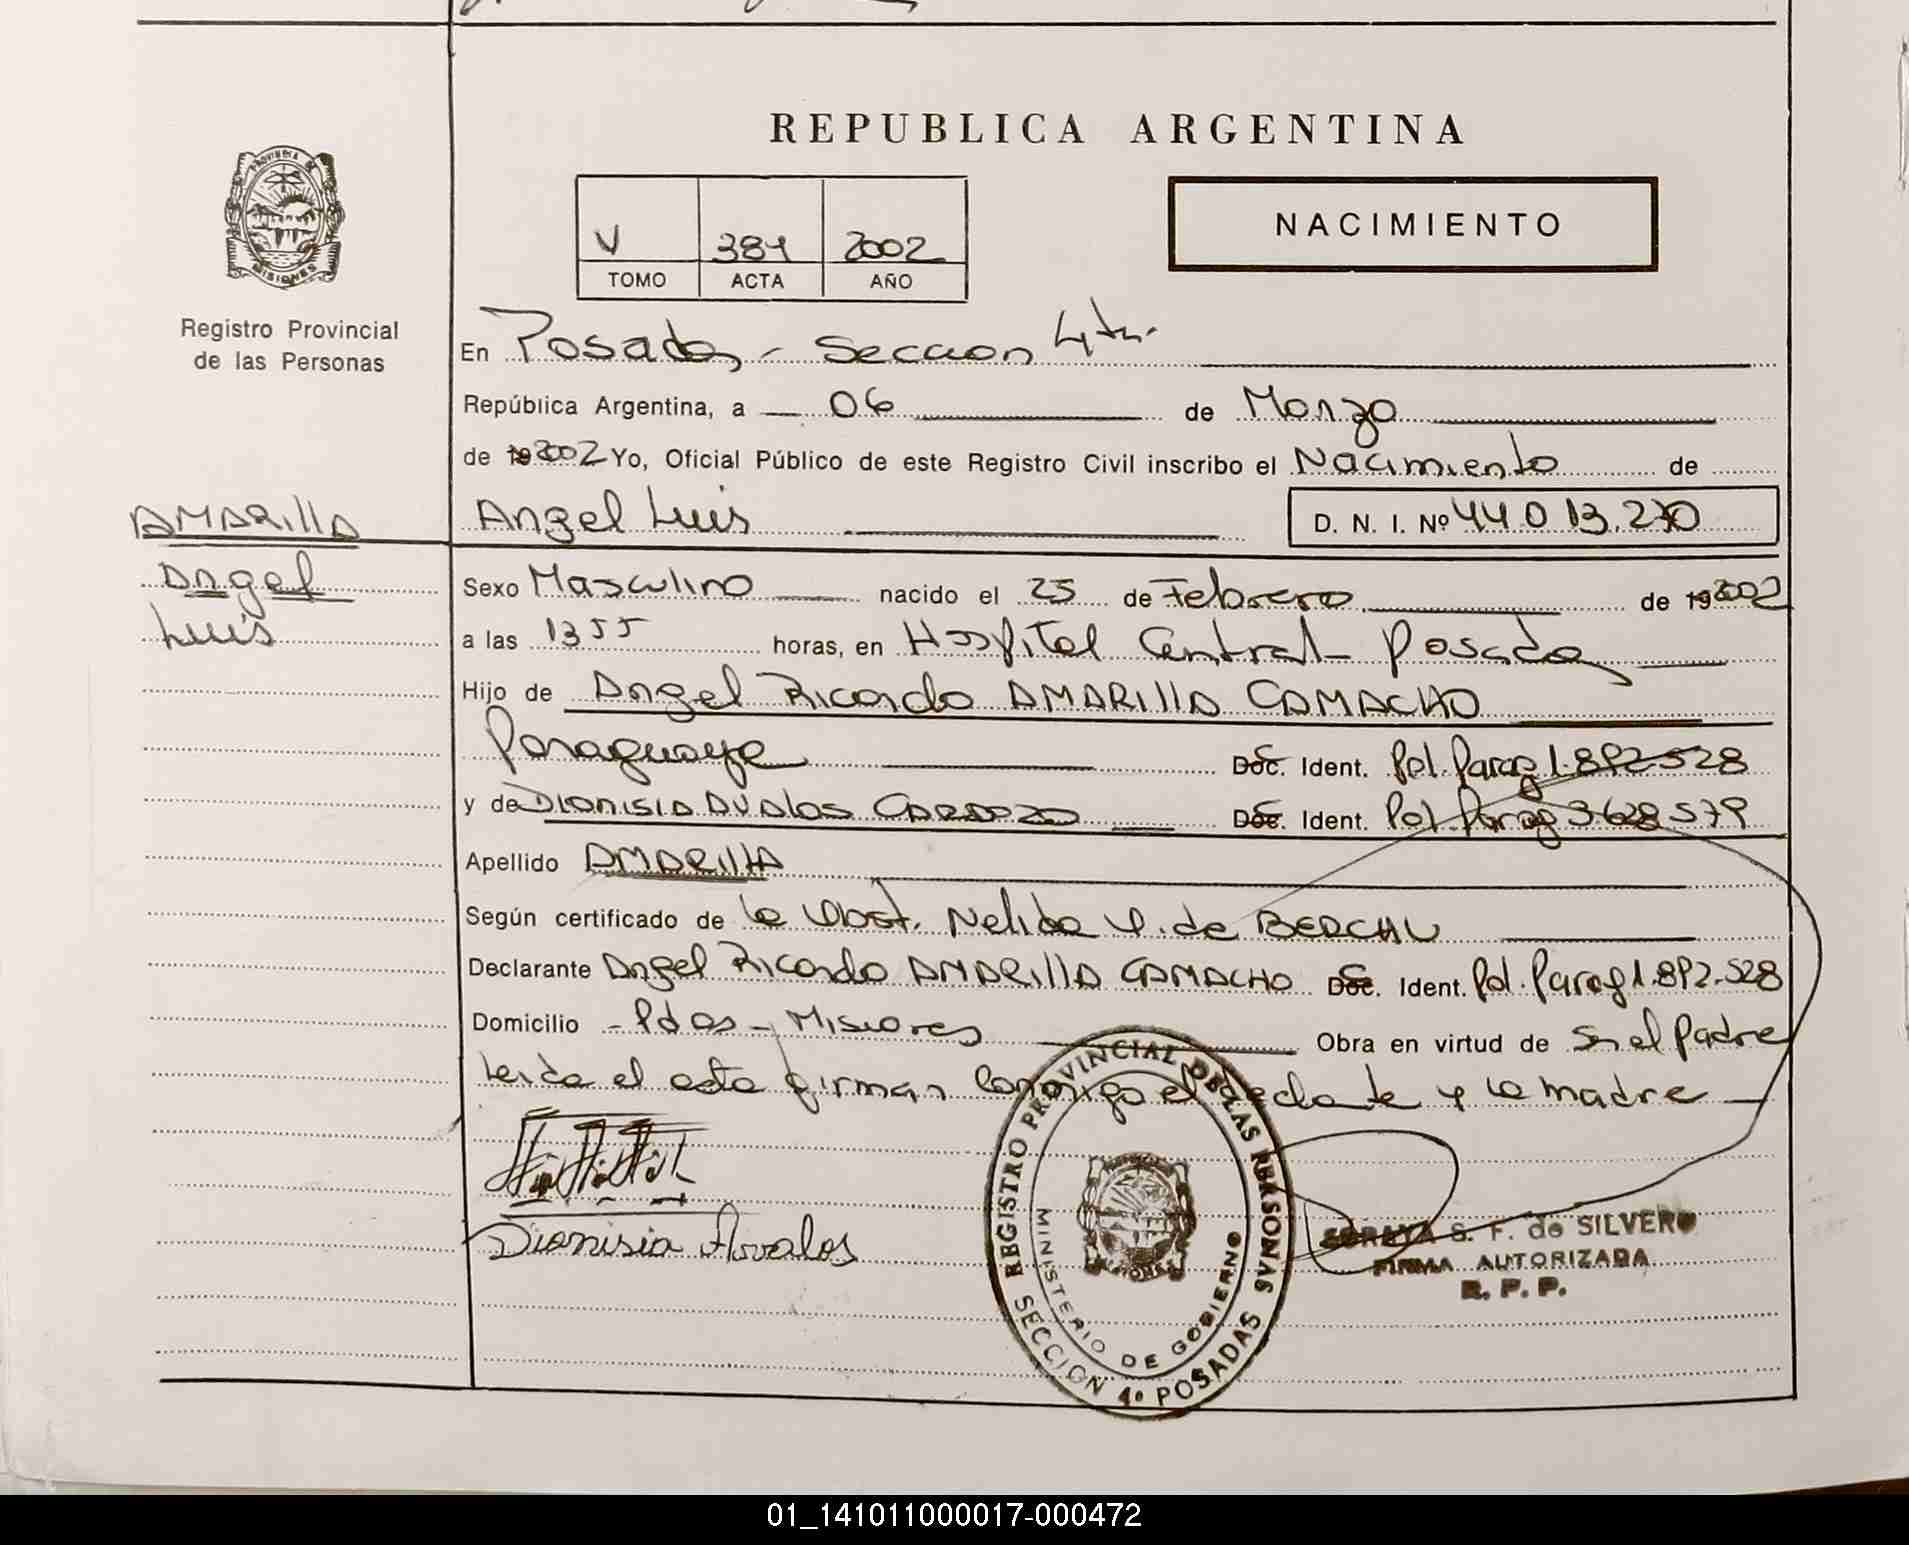 REPUBLICA ARGENTINA
PROVINCIA DE
MISIONES
Registro Provincial
de las Personas
V 384 2002
TOMO ACTA AÑO
NACIMIENTO
En Posadas - Seccion 4ta.
República Argentina, a 06 de Marzo
de 2002 Yo, Oficial Público de este Registro Civil inscribo el Nacimiento de
AMARILLA
Angel
Luis
Angel Luis D. N. I. Nº 44.013.270
Sexo Masculino nacido el 25 de Febrero de 2002
a las 1355 horas, en Hospital Central Posadas
Hijo de Angel Ricardo AMARILLA CAMACHO
Paraguaya Doc. Ident. Pol. Parag 1.892.528
y de DIONISIA AVALOS CARDOZO Doc. Ident. Pol. Parag 3628579
Apellido AMARILLA
Según certificado de la Obst. Nelida de
Declarante Angel Ricardo AMARILLA CAMACHO Doc. Ident. Pol. Parag 1.892.528
Domicilio - Pdas - Misiones Obra en virtud de Ser el Padre
Leida el acta firman conmigo el declante y la madre
Dionisia Avalos
REGISTRO PROVINCIAL DE LAS PERSONAS
MINISTERIO DE GOBIERNO
SECCION 4º POSADAS
SORAYA S. F. de SILVERO
FIRMA AUTORIZADA
R. P. P.
01_141011000017-000472